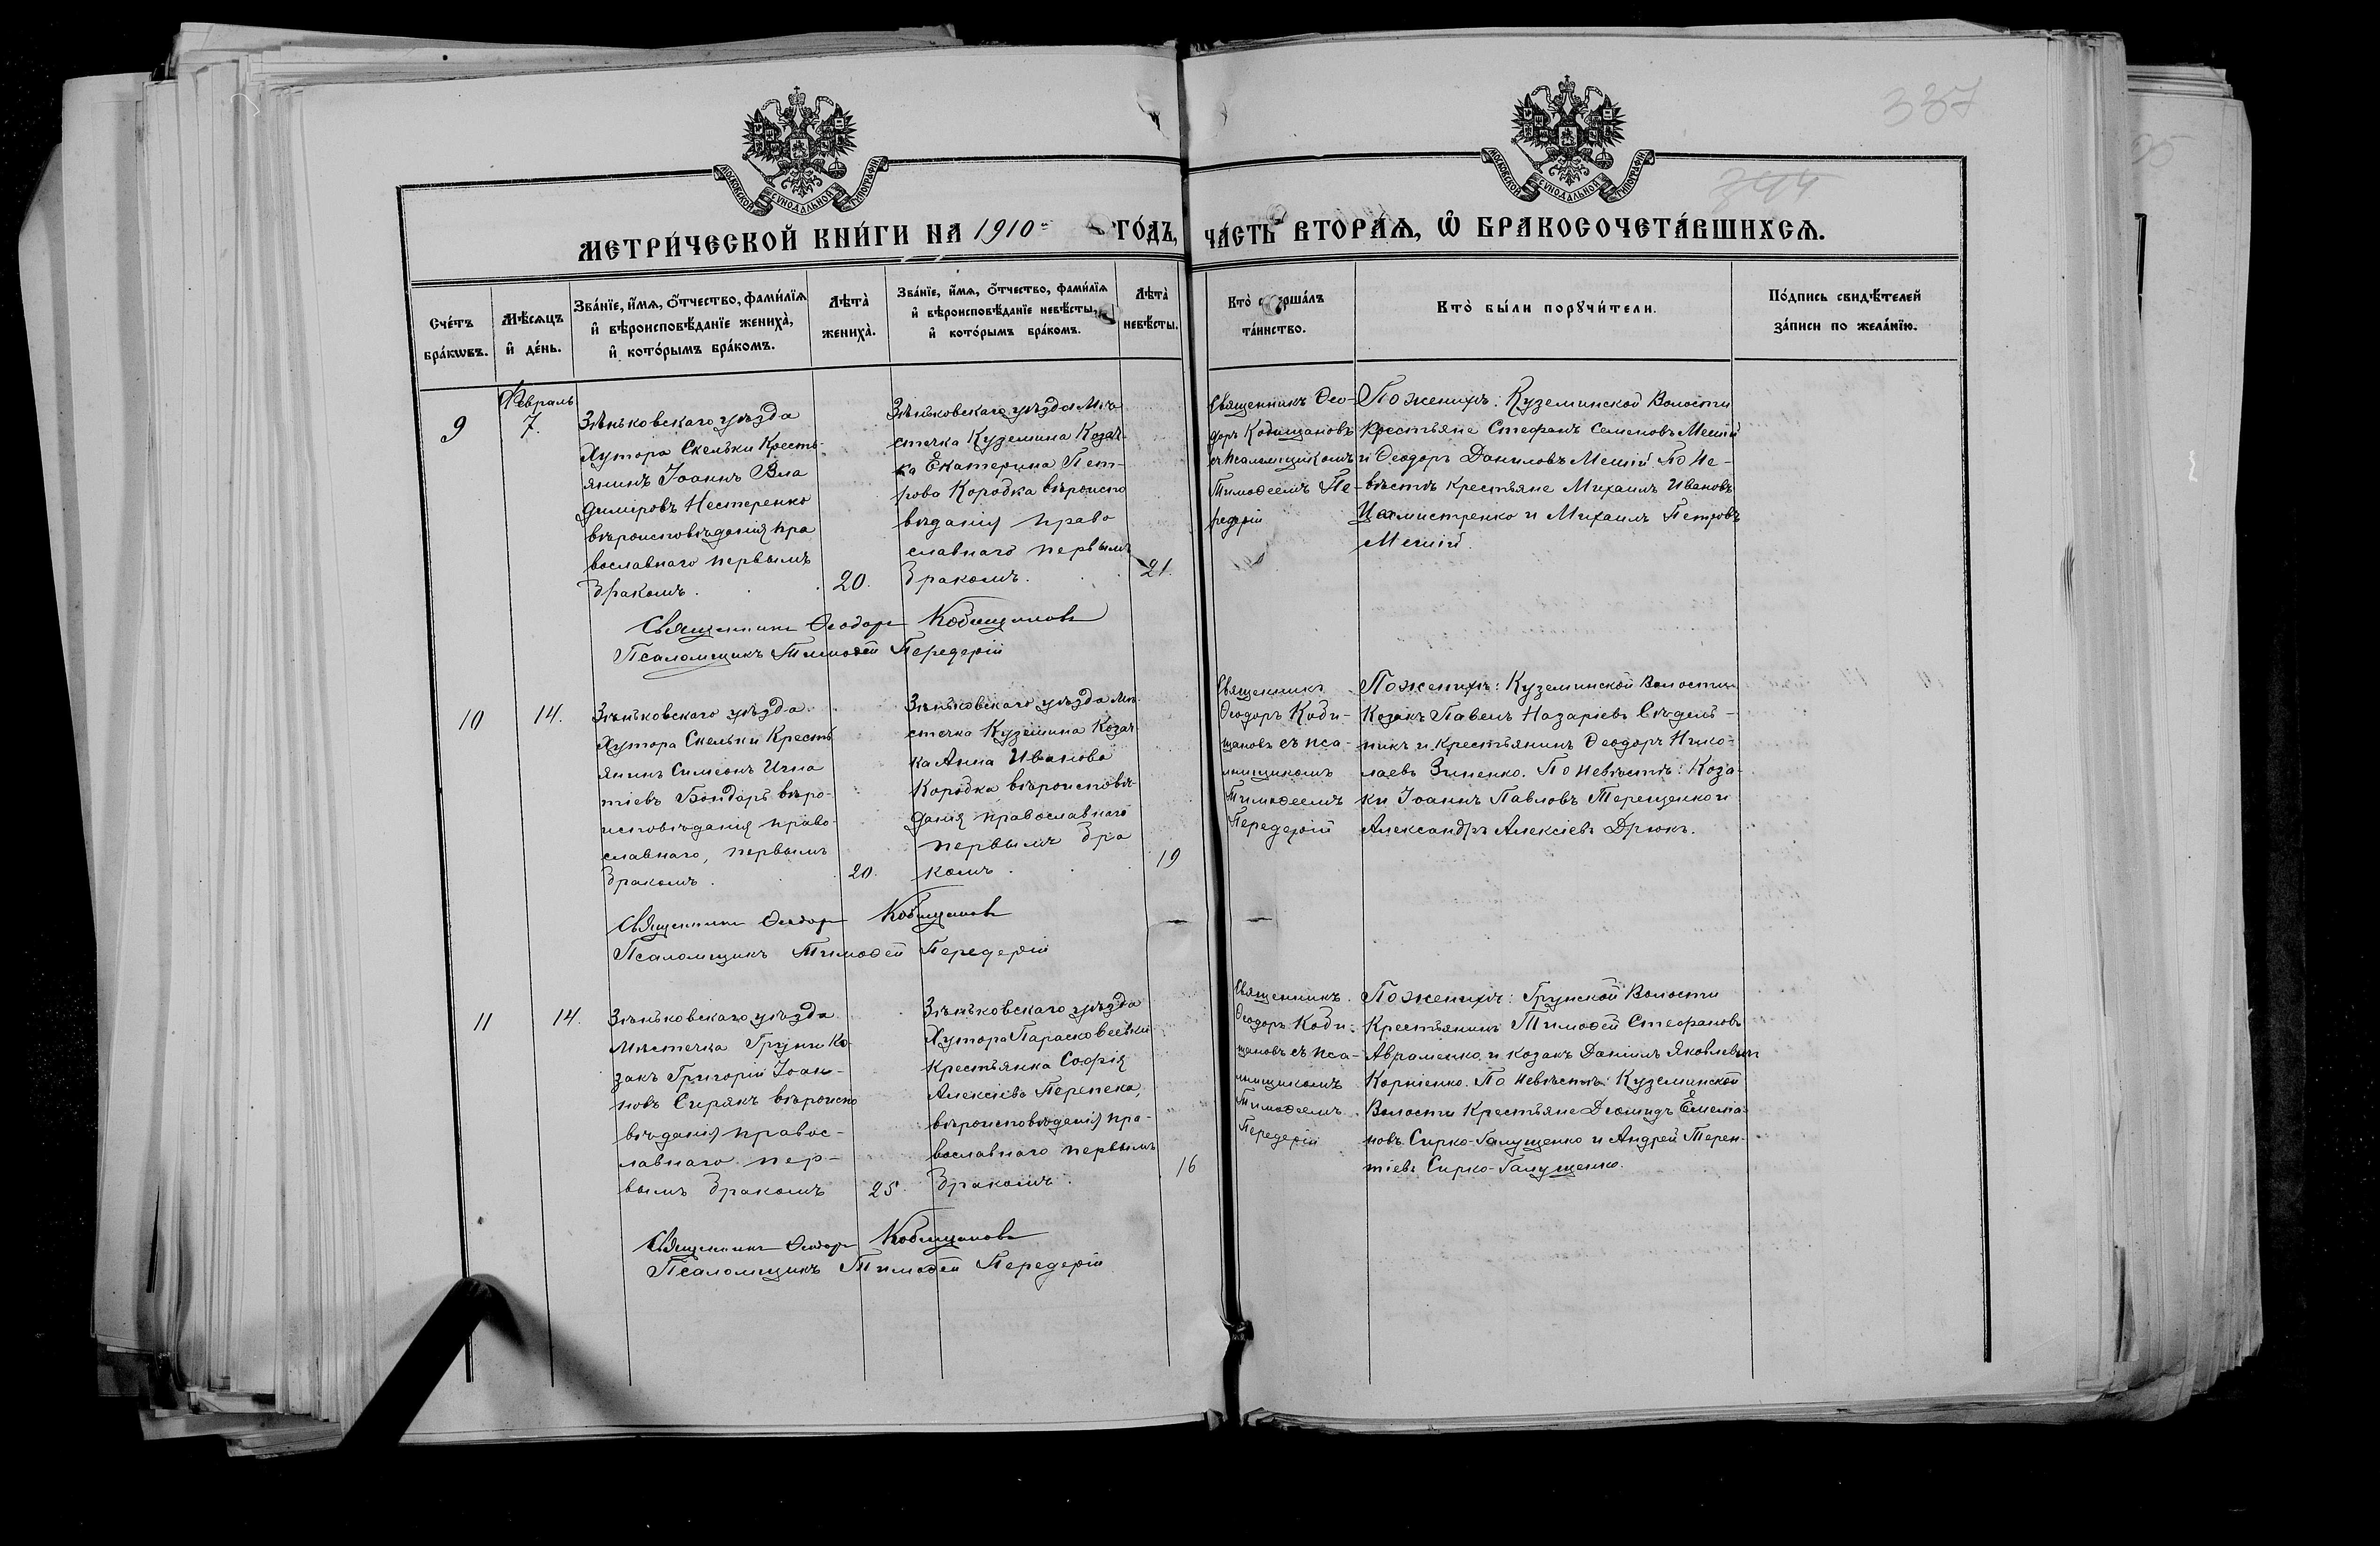 337
344
МОСКОВСКОЙ СУНОДАЛЬНОЙ ТИПОГРАФІИ
МОСКОВСКОЙ СУНОДАЛЬНОЙ ТИПОГРАФІИ
МЕТРИ́ЧЕСКОЙ КНИ́ГИ НА 1910 ГО́ДЪ, ЧА́СТЬ ВТОРА́Ѧ, Ѽ БРАКОСОЧЕТА́ВШИХСѦ.
Сче́тъ бра́кѡвъ.
Мѣ́сѧцъ и҆ де́нь.
Зва́нїе, и҆́мѧ, ѻ҆́тчество, фами́лїѧ
и҆ вѣроисповѣ́данїе жениха̀,
и҆ кото́рымъ бра́комъ.
Лѣта̀
жениха̀.
Зва́нїе, и҆́мѧ, ѻ҆́тчество, фами́лїѧ
и҆ вѣроисповѣ́данїе невѣ́сты,
и҆ кото́рымъ бра́комъ.
Лѣта̀
невѣ́сты.
Кто̀ с ерша́лъ
та́инство.
Кто̀ бы́ли порꙋчи́тели.
По́дпись свидѣ́телей
за́писи по жела́нїю.
9
Февраль
7.
Зѣньковскаго уѣзда
Хутора Скельки Кресть-
янинъ Іоаннъ Вла
диміровъ Нестеренко
вѣроисповѣданія пра
вославнаго первымъ
бракомъ.
20.
Зѣньковскаго уѣзда Мѣ
стечка Куземина Козач
ка Екатерина Пет-
рова Коробка вѣроиспо
вѣданія право
славнаго первымъ
бракомъ.
21.
Священникъ Ѳео-
доръ Кобищановъ
съ псаломщикомъ
Тимоѳеемъ Пе-
редерій
По женихѣ: Куземинской Волости
Крестьяне Стефанъ Семеновъ Мешій
и Ѳеодоръ Даниловъ Мешій. По Не-
вѣстѣ крестьяне Михаилъ Ивановъ
Цахмистренко и Михаилъ Петровъ
Мешій.
Священникъ Ѳеодоръ Кобищановъ
Псаломщикъ Тимоѳей Передерій
10
14.
Зѣньковскаго уѣзда
Хутора Скельки Кресть
янинъ Симеонъ Игна
тіевъ Бондарь вѣро-
исповѣданія право
славнаго, первымъ
бракомъ.
20.
Зѣньковскаго уѣзда Мѣ
стечка Куземина Козач
ка Анна Иванова
Коробка вѣроисповѣ-
данія православнаго
первымъ бра
комъ.
19
Священникъ
Ѳеодоръ Коби-
щановъ съ пса-
мщикомъ
Тимоѳеемъ
Передерій
По женихѣ: Куземинской Волости
Козакъ Павелъ Назаріевъ Сѣдель-
никъ и крестьянинъ Ѳеодоръ Нико-
лаевъ Зиненко. По невѣстѣ: Коза-
ки Іоаннъ Павловъ Терещенко и
Александръ Алексіевъ Дрюкъ.
Священникъ Ѳеодоръ Кобищановъ
Псаломщикъ Тимоѳей Передерій
11
14.
Зѣньковскаго уѣзда
Мѣстечка Груни Ко-
закъ Григорій Іоан-
новъ Сирякъ вѣроиспо
вѣданія правос-
лавнаго пер-
вымъ бракомъ
25.
Зѣньковскаго уѣзда
Хутора Парасковеевки
крестьянка Софія
Алексіева Перепека,
вѣроисповѣданія пра-
вославнаго первымъ
бракомъ.
16
Священникъ
Ѳеодоръ Коби-
щановъ съ пса-
мщикомъ
Тимоѳеемъ
Передерій
По женихѣ: Грунской Волости
Крестьянинъ Тимоѳей Стефановъ
Авраменко и козакъ Даніилъ Яковлевъ
Корніенко. По невѣстѣ: Куземинской
Волости Крестьяне Діомидъ Емелія
новъ Сирко-Галущенко и Андрей Терен-
тіевъ Сирко-Галущенко.
Священникъ Ѳеодоръ Кобищановъ
Псаломщикъ Тимоѳей Передерій